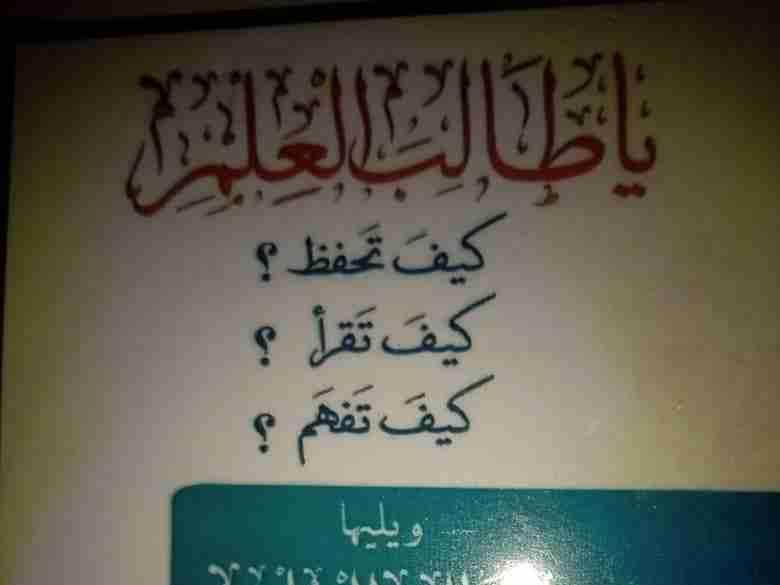 يَا طَالِبَ الْعِلْمِ
كيفَ تَحفظ ؟
كيفَ تَقرأ ؟
كيفَ تَفهَم ؟
ويليها